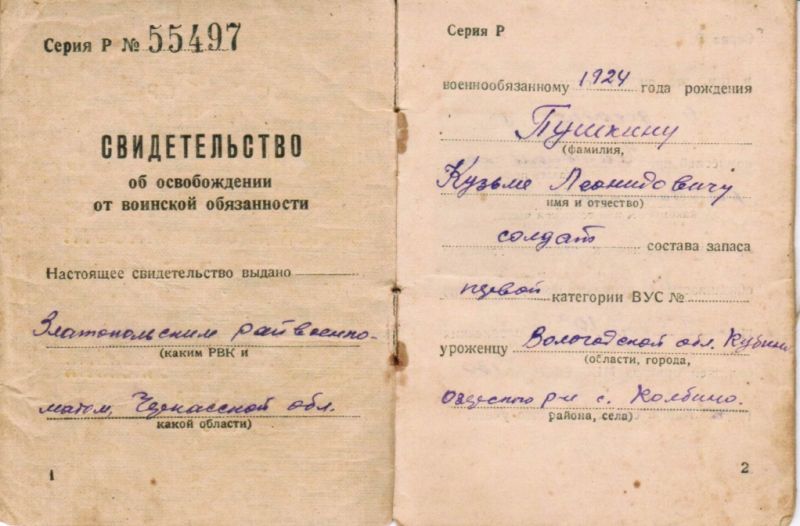 Серия Р № 55497
СВИДЕТЕЛЬСТВО
об освобождении
от воинской обязанности
Настоящее свидетельство выдано
Златопольским райвоенко-
(каким РВК и
матом, Черкасской обл.
какой области)
1
Серия Р
военнообязанному 1924 года рождения
Пушкину
(фамилия,
Кузьме Леонидовичу
имя и отчество)
солдат состава запаса
первой категории ВУС №
уроженцу Вологодской обл. Кубино
(области, города,
озерского р-н с. Колбино.
района, села)
2